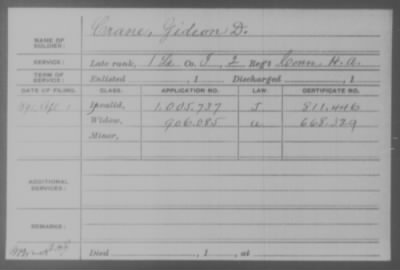 NAME OF SOLDIER: Crane, Gideon D.
SERVICE: Late rank, Co. I, 2 Reg't Conn H. A.
TERM OF SERVICE: Enlisted , 1 Discharged , 1
DATE OF FILING. CLASS. APPLICATION NO. LAW. CERTIFICATE NO.
Invalid, 1.005.737 811.446
Widow, 906.085 668.329
Minor,
ADDITIONAL SERVICES:
REMARKS:
Died , 1 , at